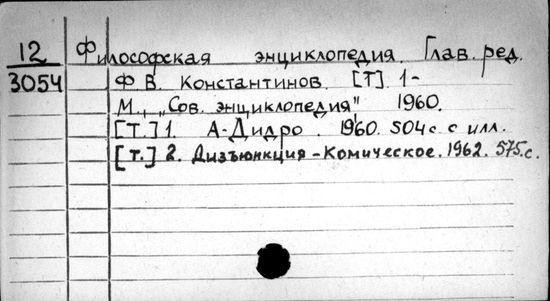 12 Философская энциклопедия. Глав. ред.
3054 Ф В. Константинов. [Т] 1-
М., „Сов. энциклопедия" 1960.
[Т.] 1. А-Дидро. 1960. 504 с. с илл.
[т.] 2. Дизъюнкция-Комическое. 1962. 575.с.